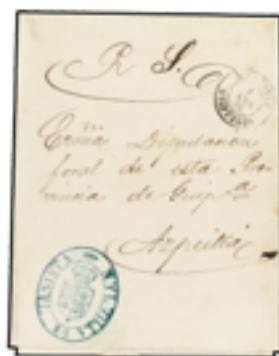 R S.
Exma Diputacion
foral de esta Pro
vincia de Guip.ª
Azpeitia